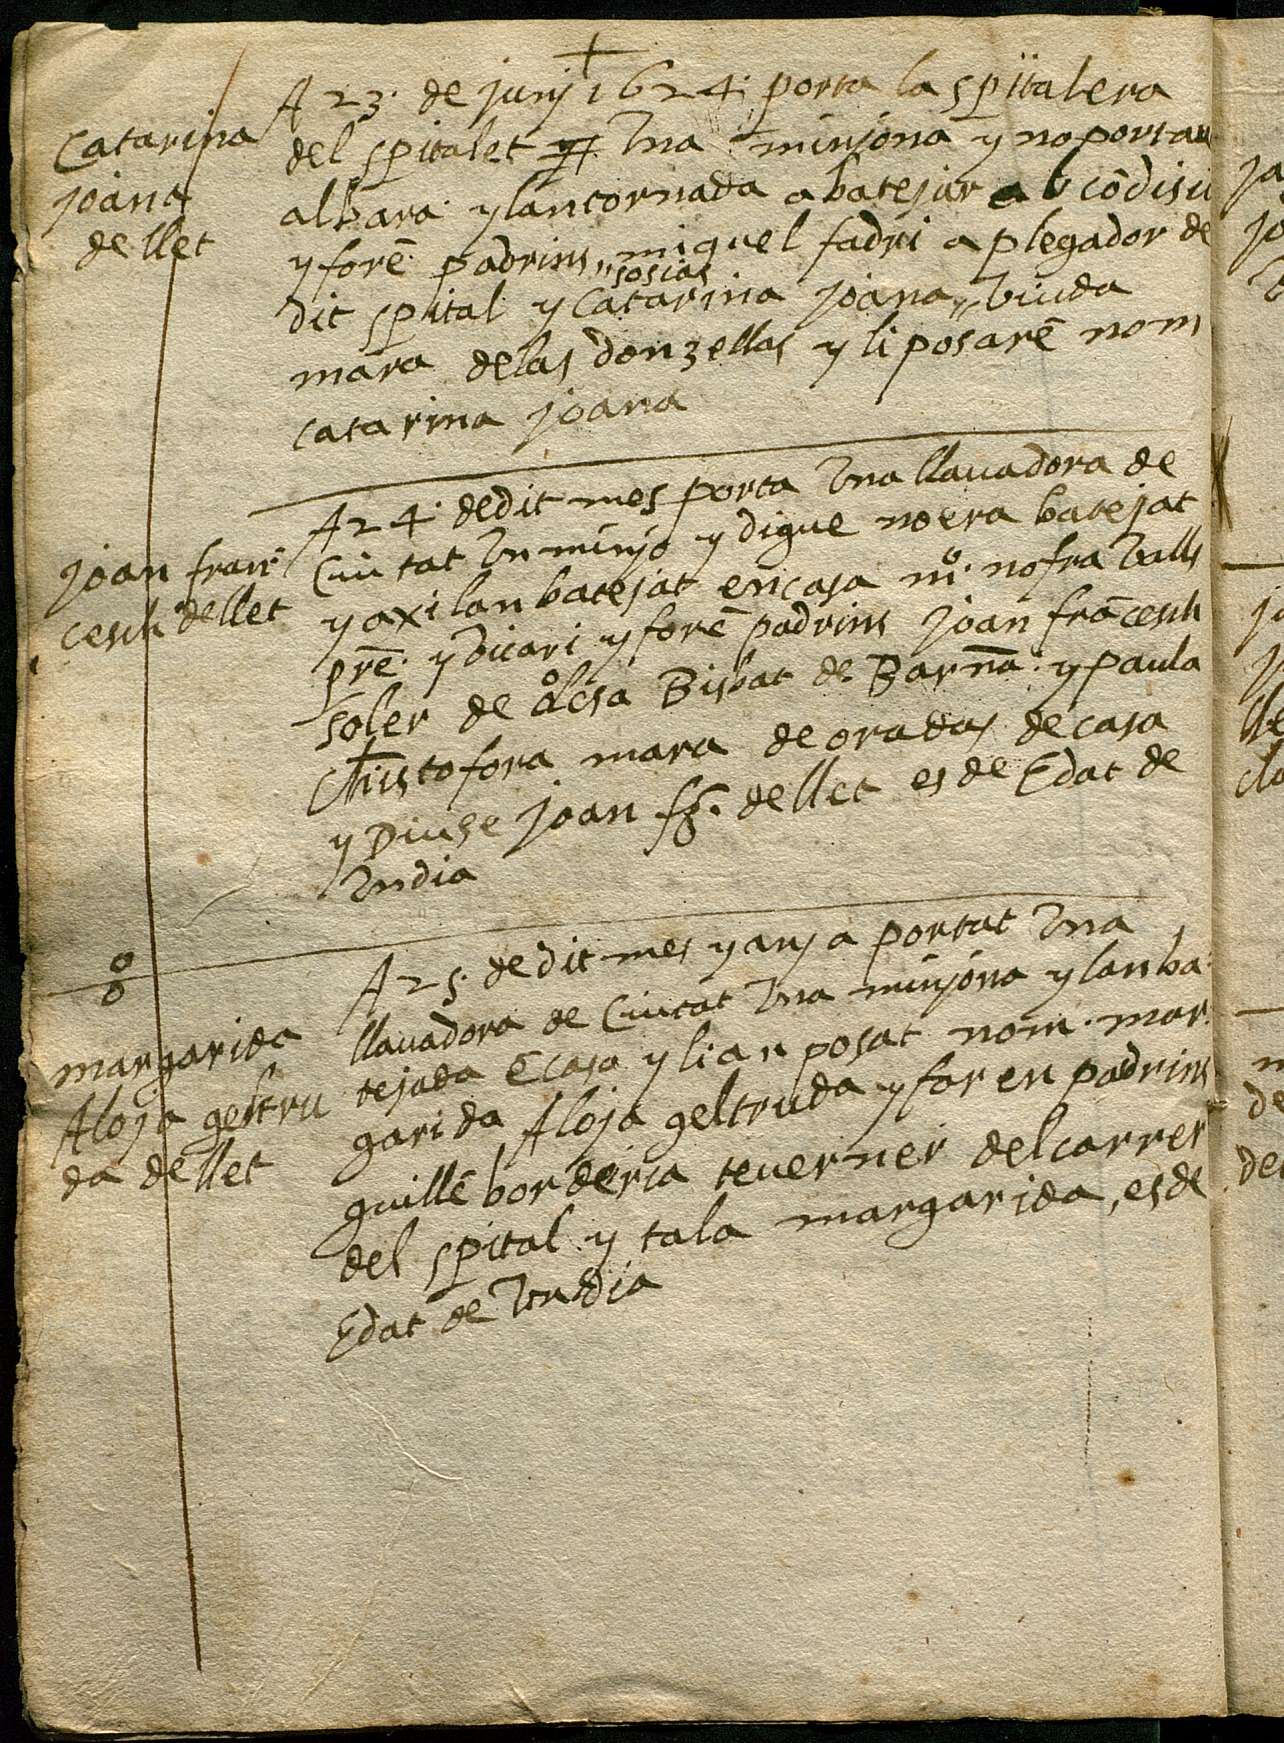 +
Catarina
joana
de llet
A 23. de juny 1624. porta la spitalera
del spitalet una minyona y no portau
albara y lan tornada a batejar ab cõdisi
y forẽ padrins miquel fadri aplegador de
sosias
dit spital y Catarina joana viuda
mara de las donzellas y li posarẽ nom
catarina joana
joan fran
cesch de llet
A 24. de dit mes porta una llauadora de
Ciutat un minyo y digue no era batejat
y axi lan batejat en casa mº. nofra valls
prẽ. y vicari y forẽ padrins joan frãcesch
soler de olesa Bisbat de Barna. y paula
Christofora mara de oradas de casa
y Diuse joan fº. de llet es de Edat de
un dia
margarida
Aloja geltru
da de llet
A 25. de dit mes y any a portat una
llauadora de Ciutat una minyona y lan ba
tejada ẽ casa y li an posat nom. mar
garida Aloja geltruda y foren padrins
guillẽ borderia teuerner del carrer
del spital y tala margarida, es de
Edat de un dia